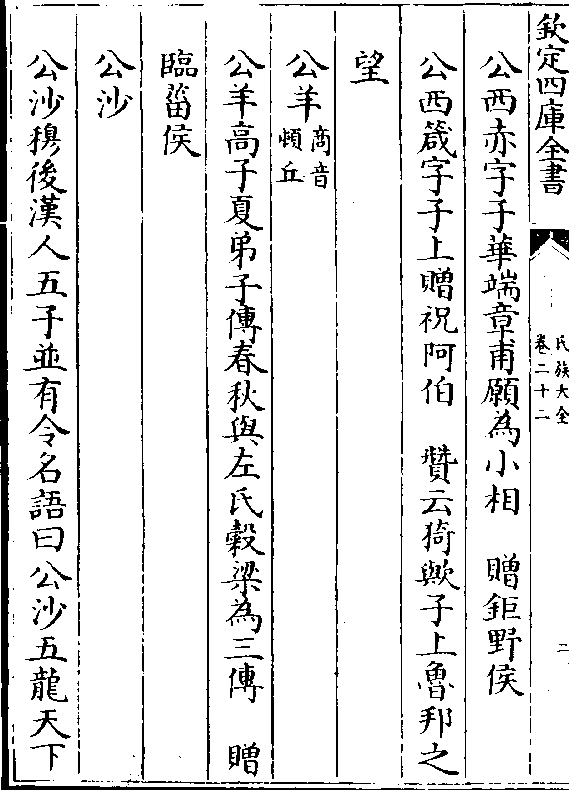 欽定四庫全書
氏族大全
卷二十二
二
公西赤字子華端章甫願為小相　贈鉅野侯
公西箴字子上贈祝阿伯　贊云猗歟子上魯邦之
望
公羊商音
頓丘
公羊高子夏弟子傳春秋與左氏穀梁為三傳　贈
臨菑侯
公沙
公沙穆後漢人五子並有令名語曰公沙五龍天下